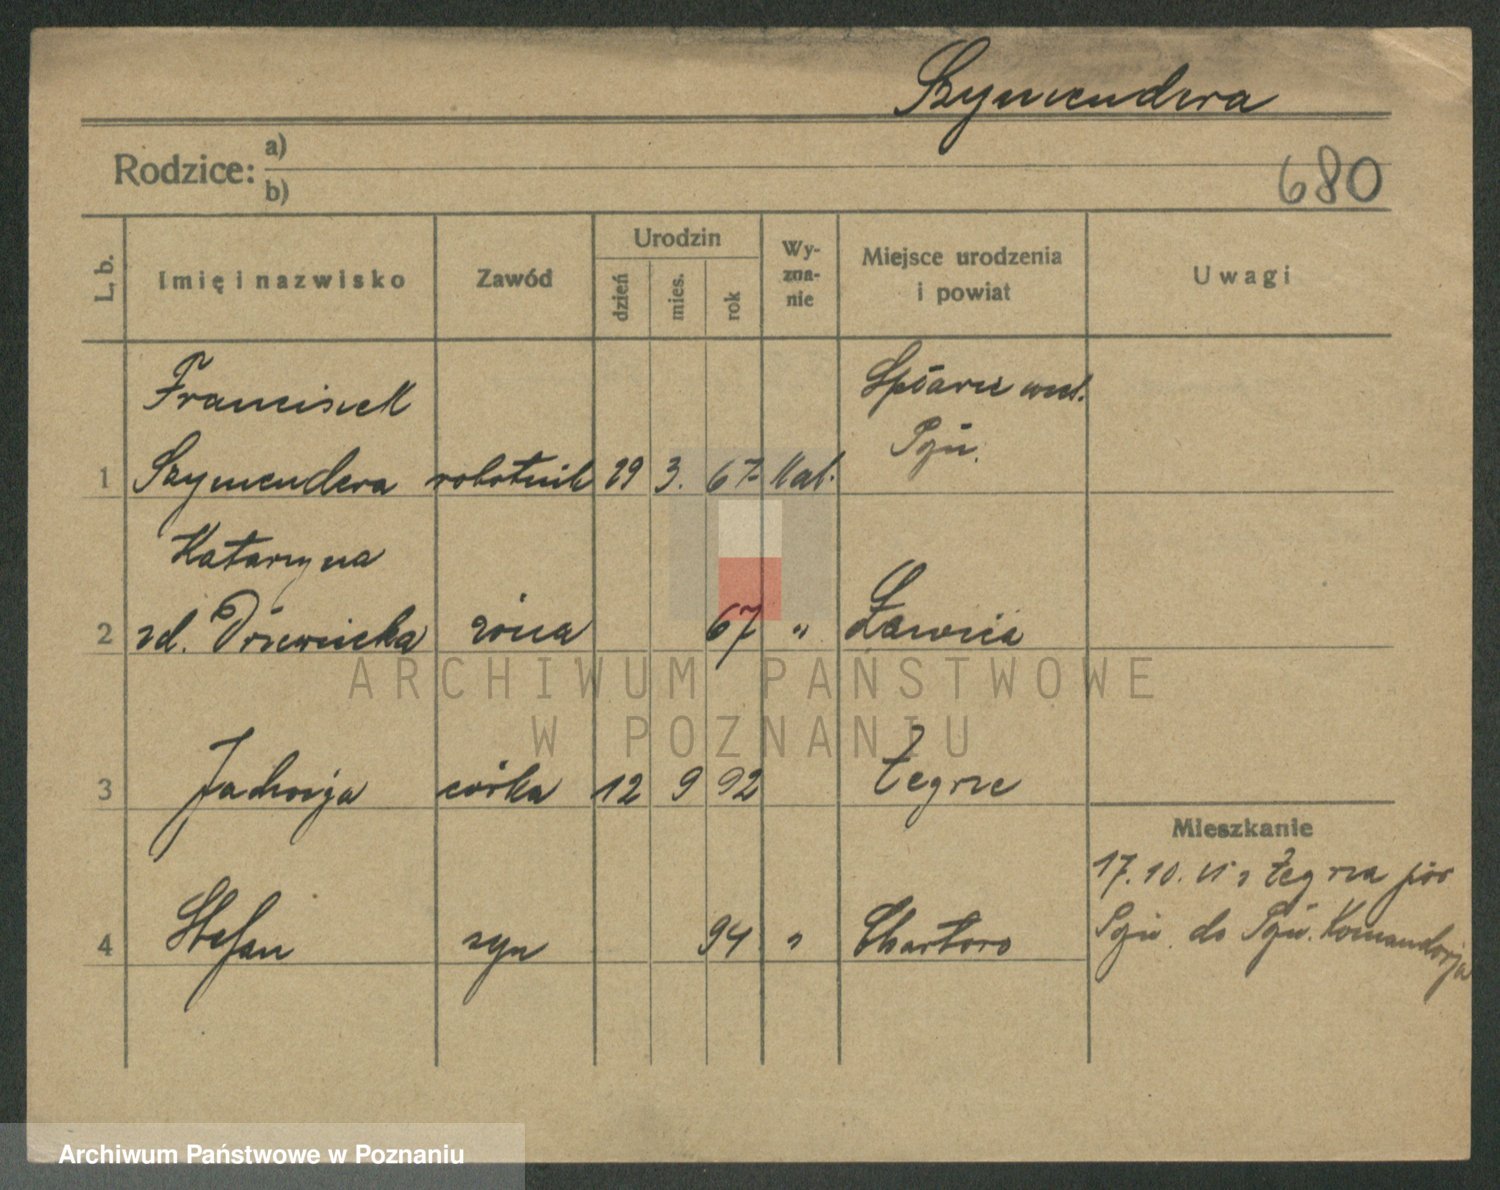 Szymendera
Rodzice: a)
b)
680
L. b. Imię i nazwisko Zawód Urodzin dzień mies. rok Wy-zna-nie Miejsce urodzenia i powiat Uwagi
Franciszek
Szymendera robotnik 29 3. 67 kat.
Pzń.
1
Katarzyna
2 zd. Drzewiecka żona 67 " Ławica
3 Jadwiga córka 12 9 92 Żegrze
Mieszkanie
17.10. z Żegrza pow
Pzń. do Pzń. Komandorja
4 Stefan syn 94 " Chartowo
ARCHIWUM PAŃSTWOWE
W POZNANIU
Archiwum Państwowe w Poznaniu